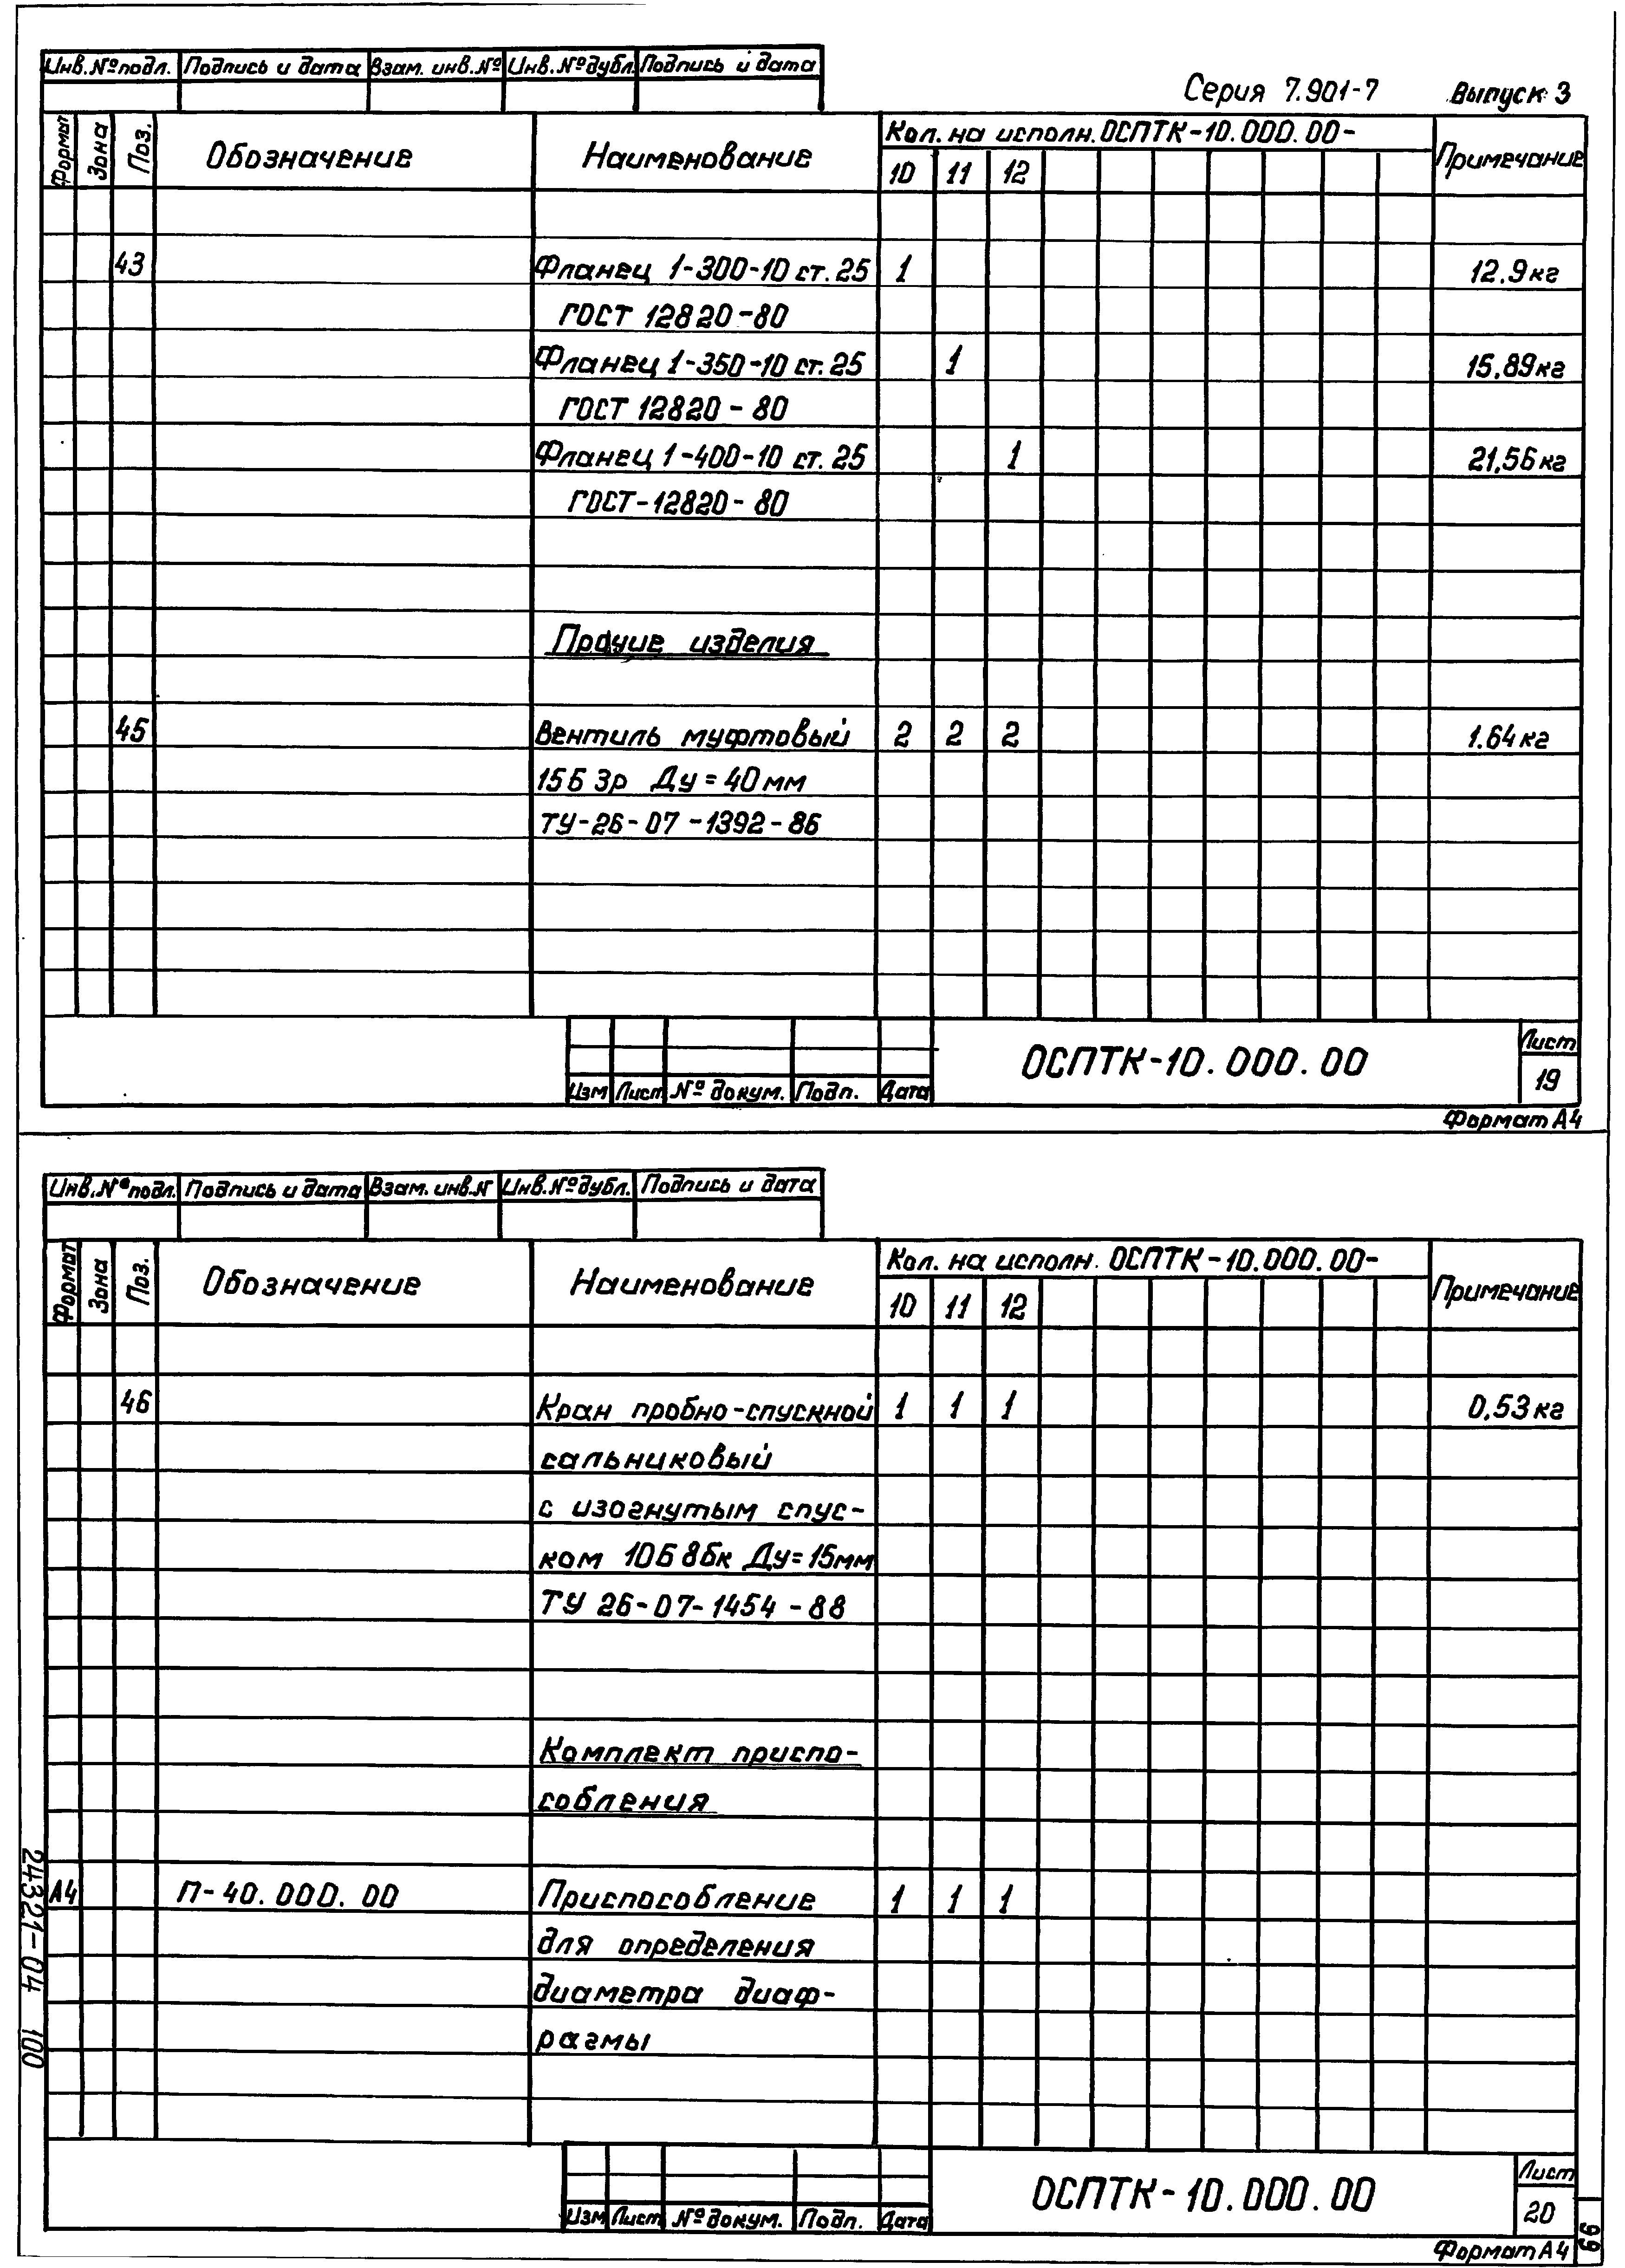 Инв.№подл. Подпись и дата Взам. инв.№ Инв.№дубл. Подпись и дата
Серия 7.901-7 Выпуск 3
Формат Зона Поз. Обозначение Наименование Кол. на исполн. ОСПТК-10.000.00- Примечание
10 11 12
43 Фланец 1-300-10 ст.25 1 12.9кг
ГОСТ 12820-80
Фланец 1-350-10 ст.25 1 15,89кг
ГОСТ 12820-80
Фланец 1-400-10 ст.25 1 21,56кг
ГОСТ-12820-80
Прочие изделия
45 Вентиль муфтовый 2 2 2 1.64кг
15Б 3р Ду=40мм
ТУ-26-07-1392-86
ОСПТК-10.000.00 Лист
19
Изм Лист № докум. Подп. Дата
Формат А4
Инв.№подл. Подпись и дата Взам. инв.N Инв.№дубл. Подпись и дата
Формат Зона Поз. Обозначение Наименование Кол. на исполн. ОСПТК-10.000.00- Примечание
10 11 12
46 Кран пробно-спускной 1 1 1 0,53кг
сальниковый
с изогнутым спус-
ком 10Б 8бк Ду=15мм
ТУ 26-07-1454-88
Комплект приспо-
собления
А4 П-40.000.00 Приспособление 1 1 1
для определения
диаметра диаф-
рагмы
24321-04 100
ОСПТК-10.000.00 Лист
20
Изм Лист № докум. Подп. Дата
Формат А4
99